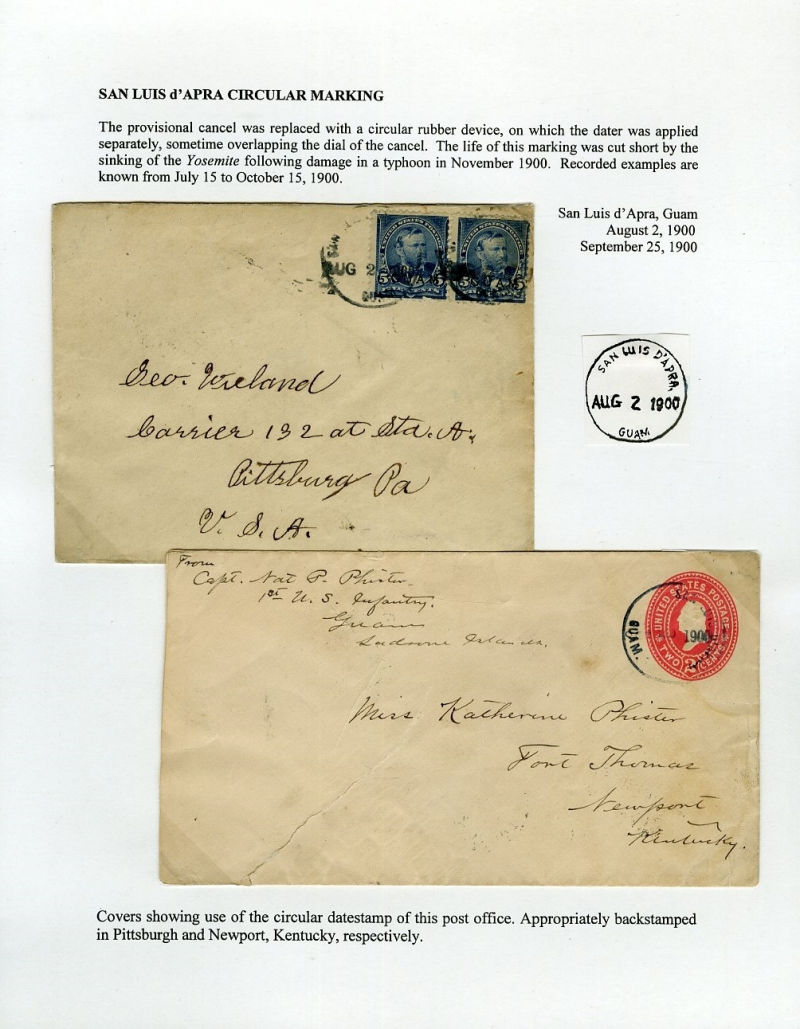 SAN LUIS d'APRA CIRCULAR MARKING
The provisional cancel was replaced with a circular rubber device, on which the dater was applied
separately, sometime overlapping the dial of the cancel. The life of this marking was cut short by the
sinking of the Yosemite following damage in a typhoon in November 1900. Recorded examples are
known from July 15 to October 15, 1900.
San Luis d'Apra, Guam
August 2, 1900
September 25, 1900
AUG 2
GUAM
Geo. Wieland
Carrier 132 at Sta. A.
Pittsburg Pa
U. S. A.
SAN LUIS D'APRA,
AUG 2 1900
GUAM.
From
Capt. Nat P. Phister
1st U. S. Infantry.
Guam
Ladrone Islands.
UNITED STATES POSTAGE
TWO CENTS
1900
GUAM.
Miss Katherine Phister
Fort Thomas
Newport
Kentucky.
Covers showing use of the circular datestamp of this post office. Appropriately backstamped
in Pittsburgh and Newport, Kentucky, respectively.